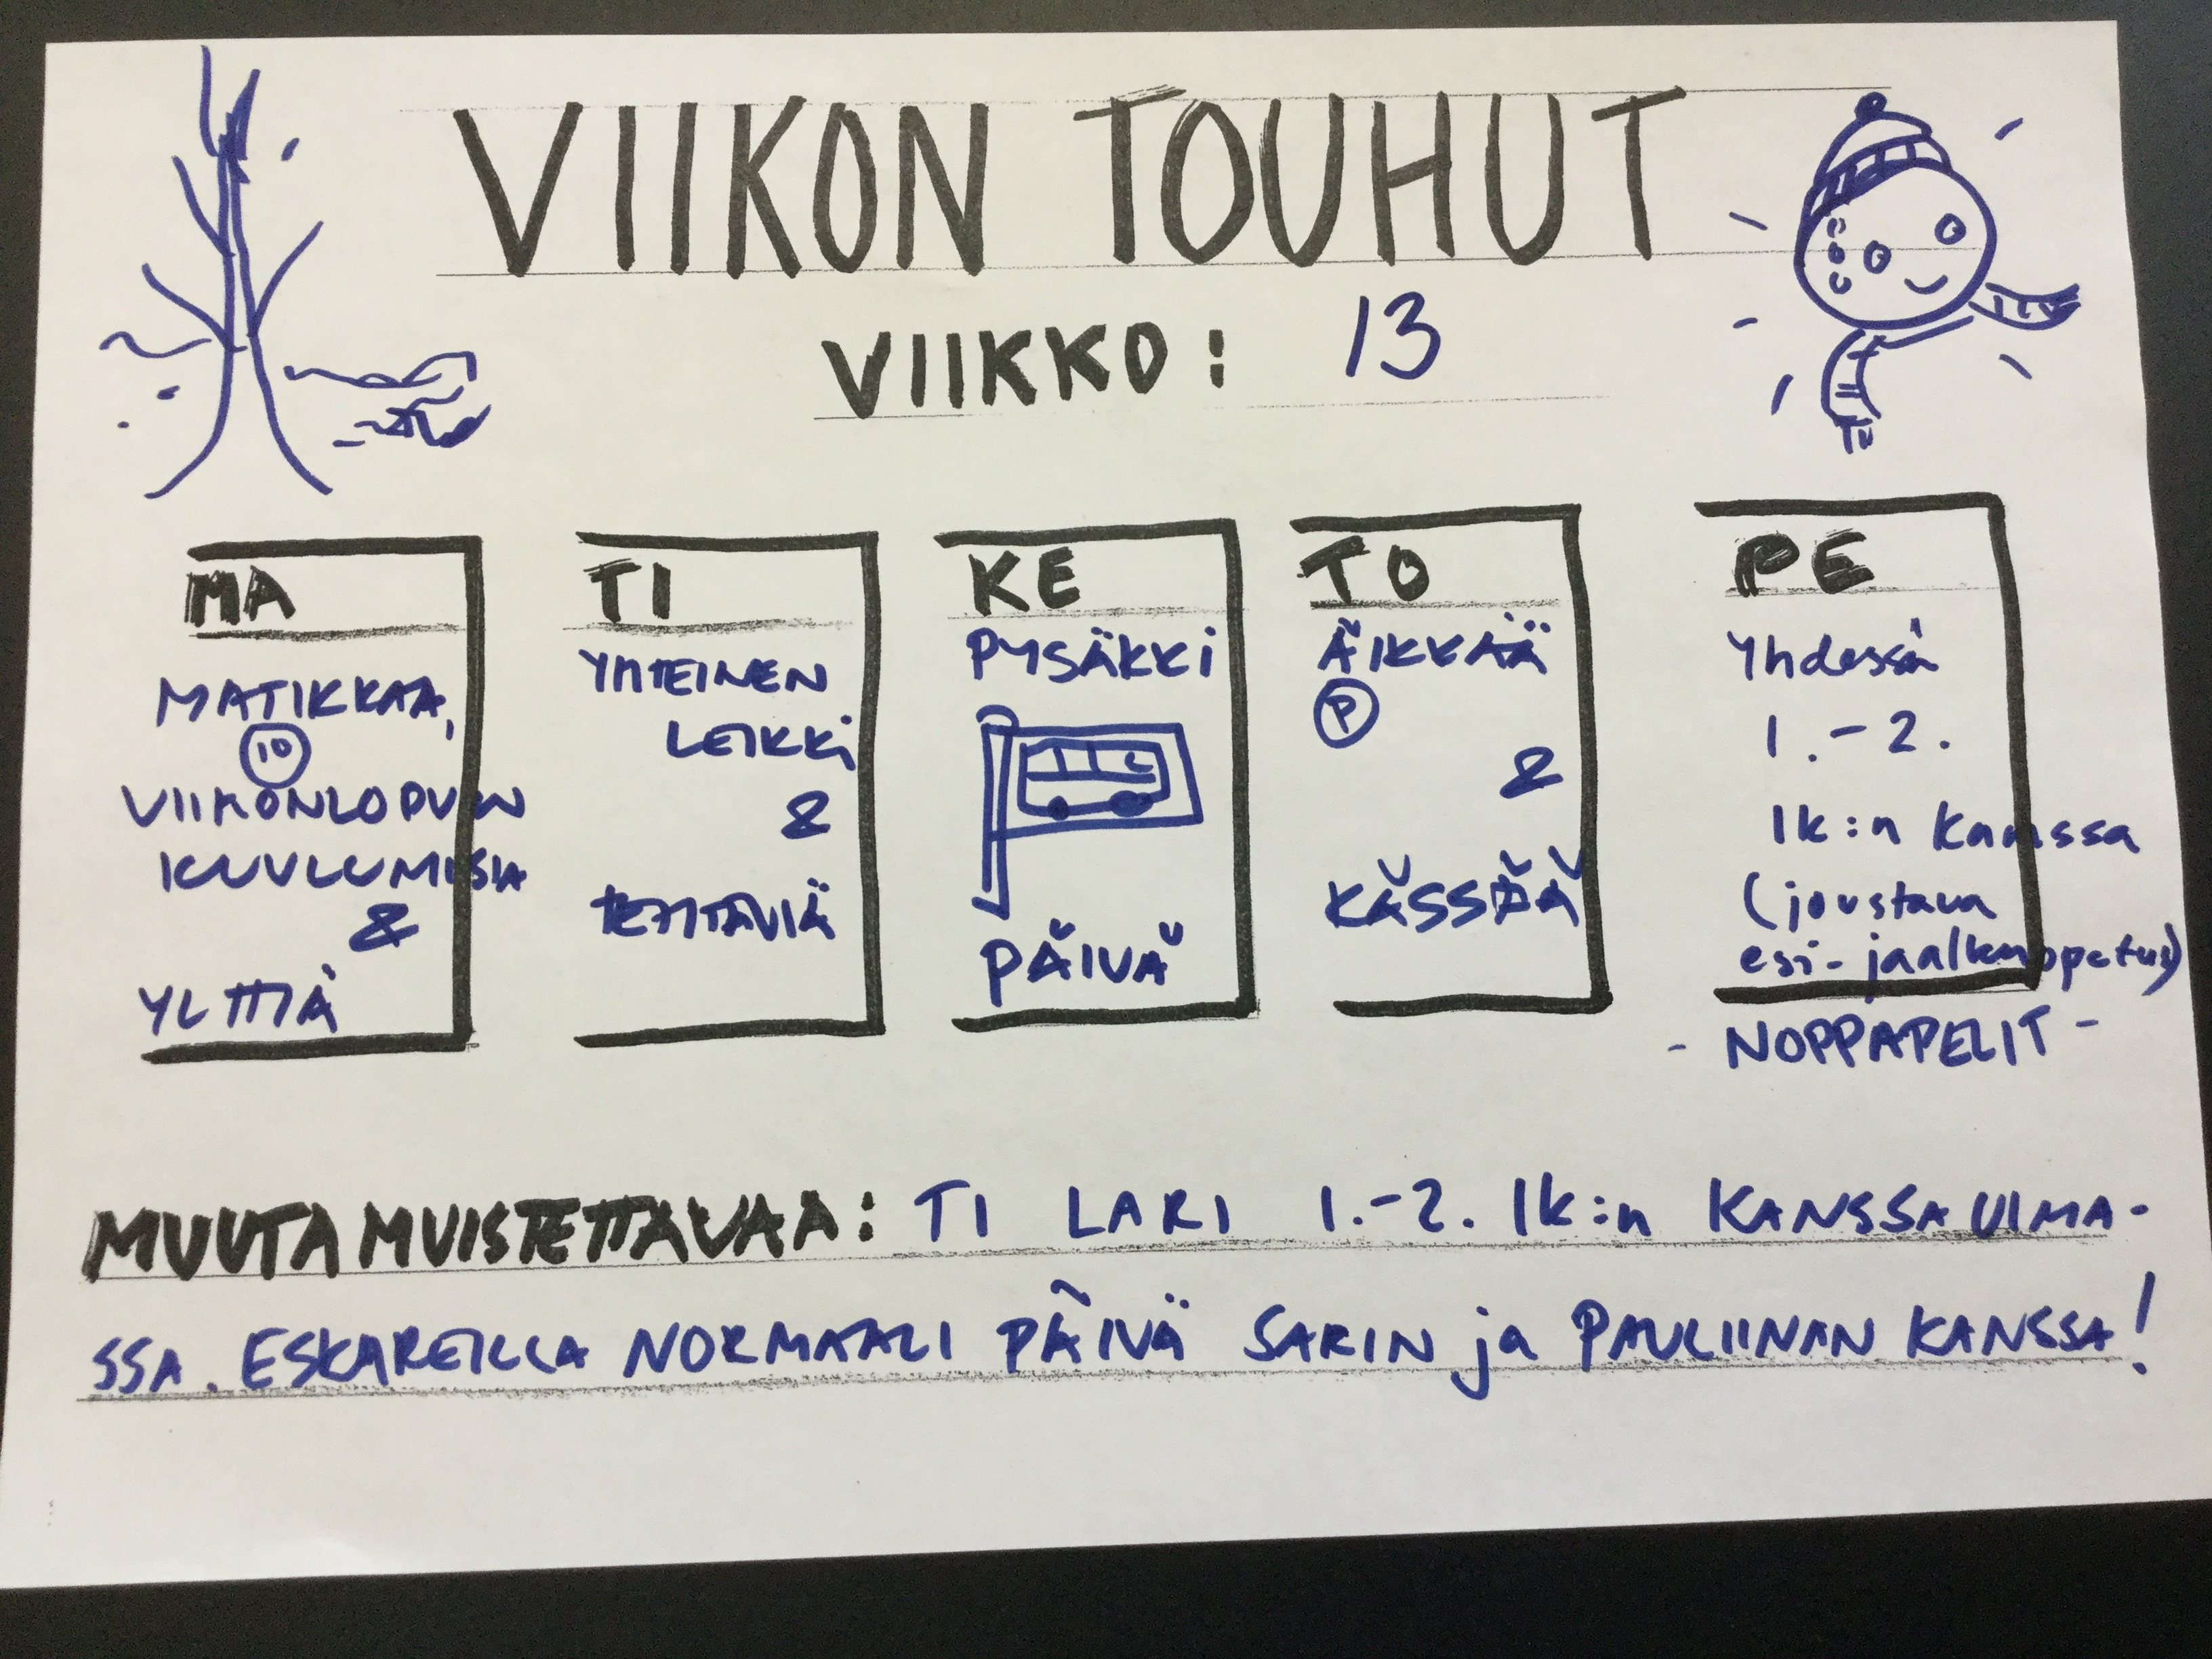 VIIKON TOUHUT
VIIKKO: 13
MA
MATIKKAA,
10
VIIKONLOPUN
KUULUMISIA
&
YLTTIÄ
TI
YHTEINEN
LEIKKI
&
TEHTÄVIÄ
KE
PYSÄKKI
PÄIVÄ
TO
ÄIKKÄÄ
P
&
KÄSSÄÄ
PE
Yhdessä
1.-2.
lk:n kanssa
(joustava
esi- ja alkuopetus)
- NOPPAPELIT -
MUUTA MUISTETTAVAA: TI LARI 1.-2. lk:n KANSSA UIMA-
SSA. ESKAREILLA NORMAALI PÄIVÄ SARIN ja PAULIINAN KANSSA!